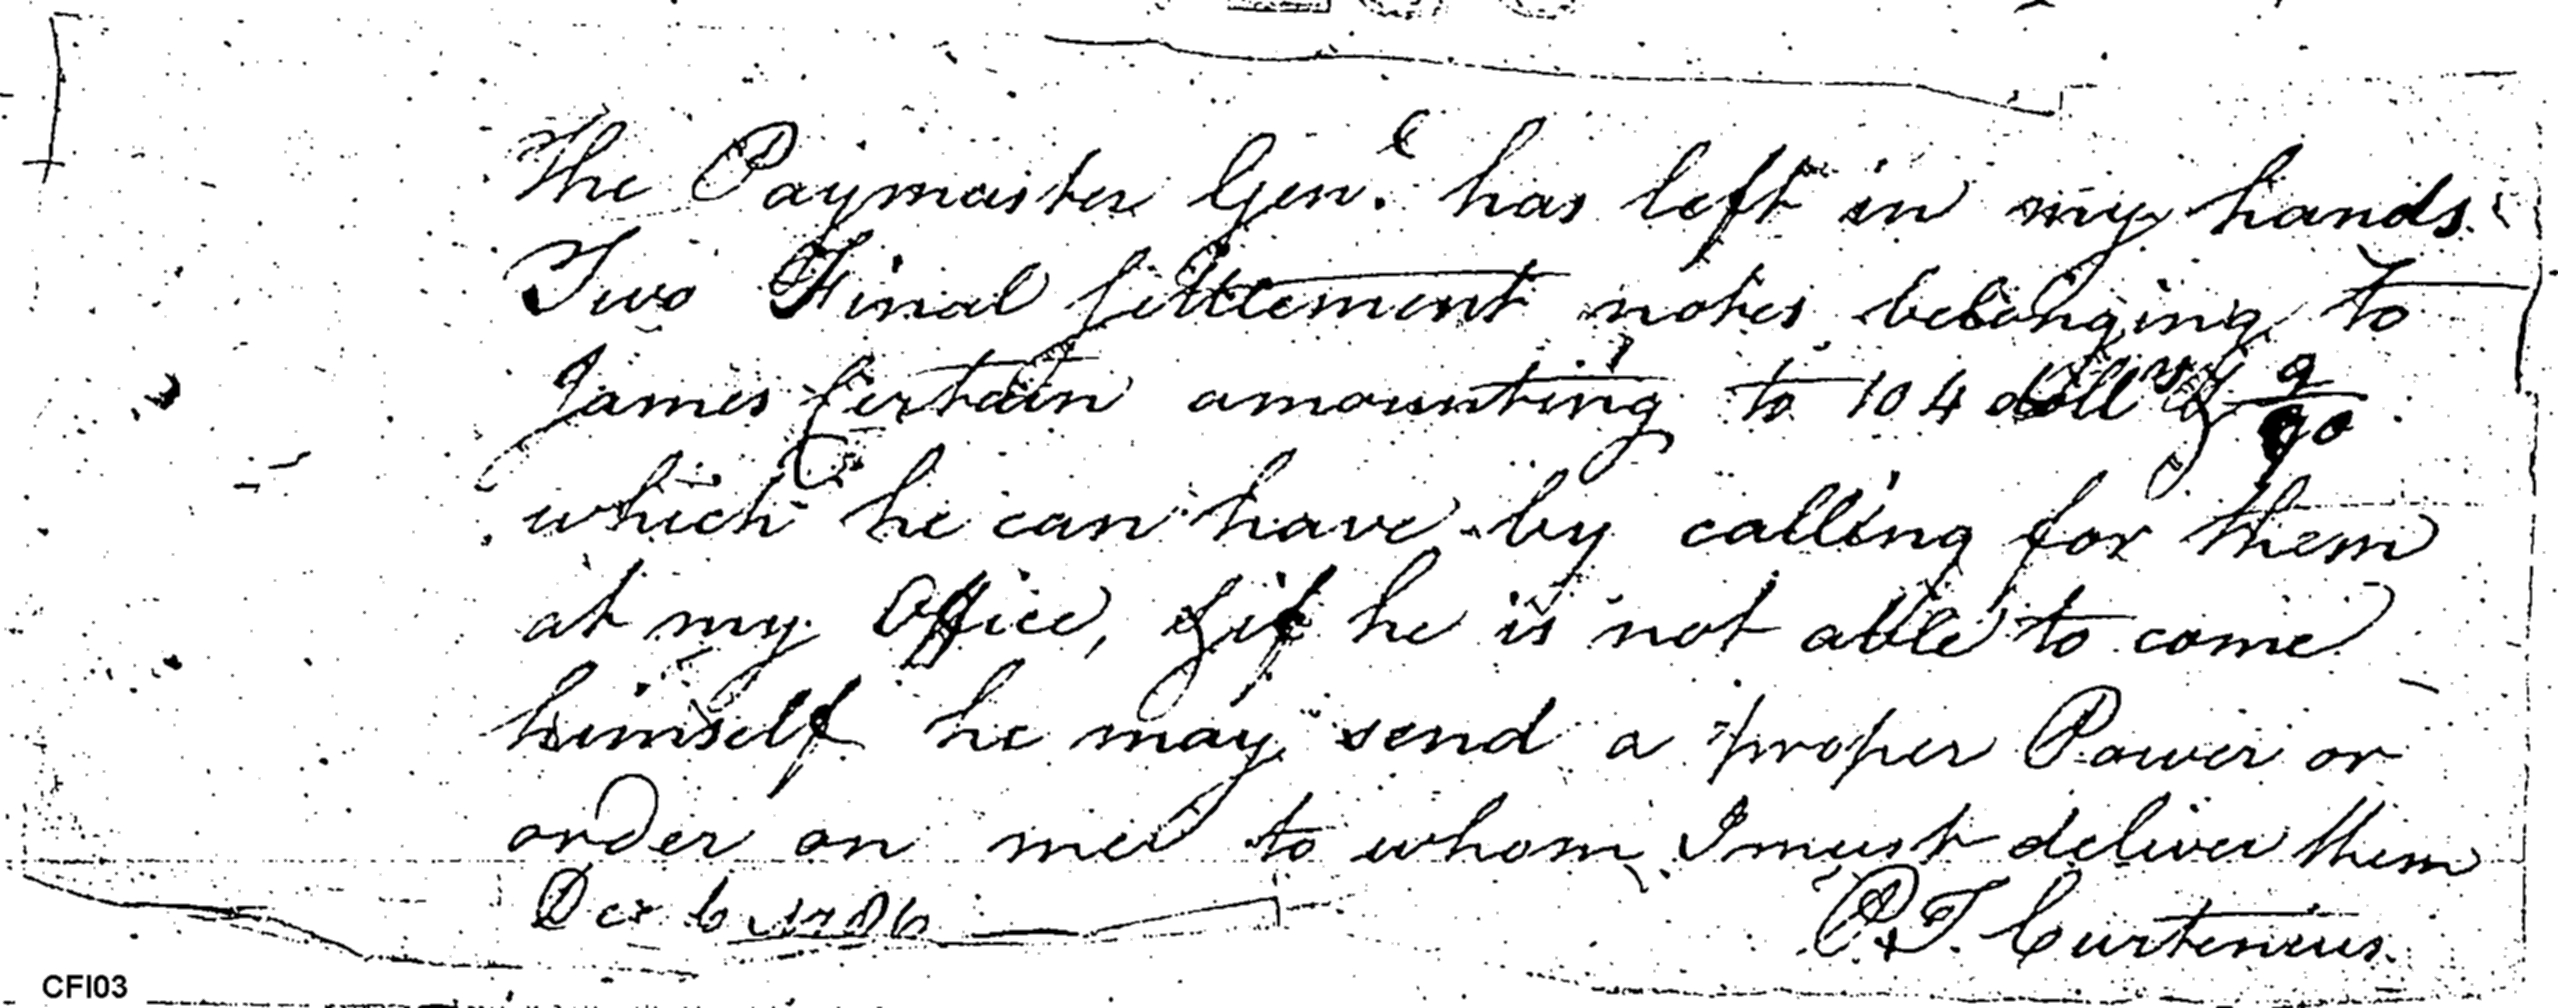 The Paymaster Gen.l has left in my hands
Two Final settlement notes belonging to
James Certain amounting to 104 dollrs & 9/90
which he can have by calling for them
at my Office, & if he is not able to come
himself he may send a proper Power or
order on me to whom I must deliver them
Dec 6 1786
P.T. Curtenius
CFI03